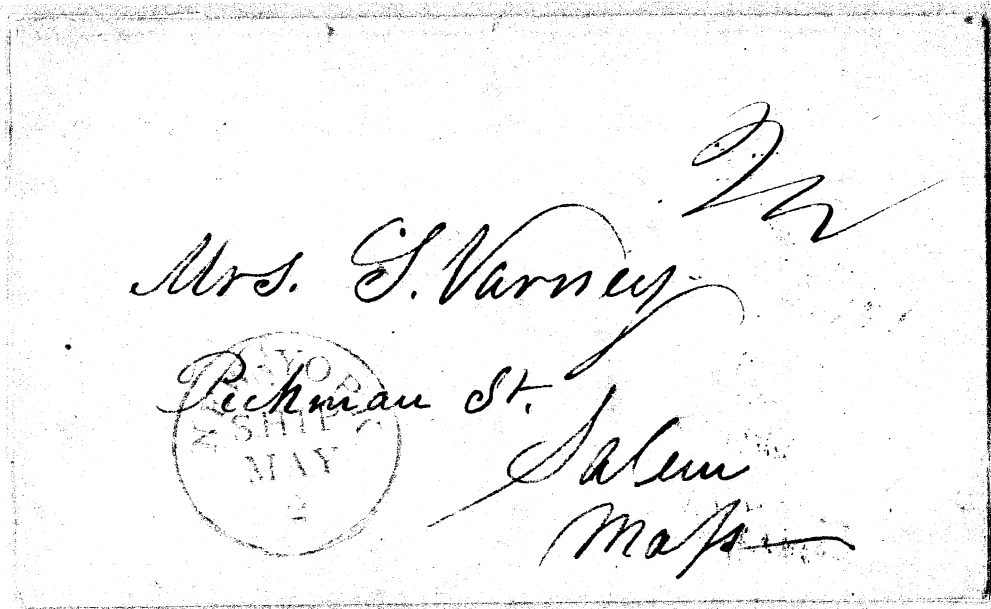 Mrs. S. Varney
Pickman St.
Salem
Mass
NEW YORK
SHIP
MAY
2